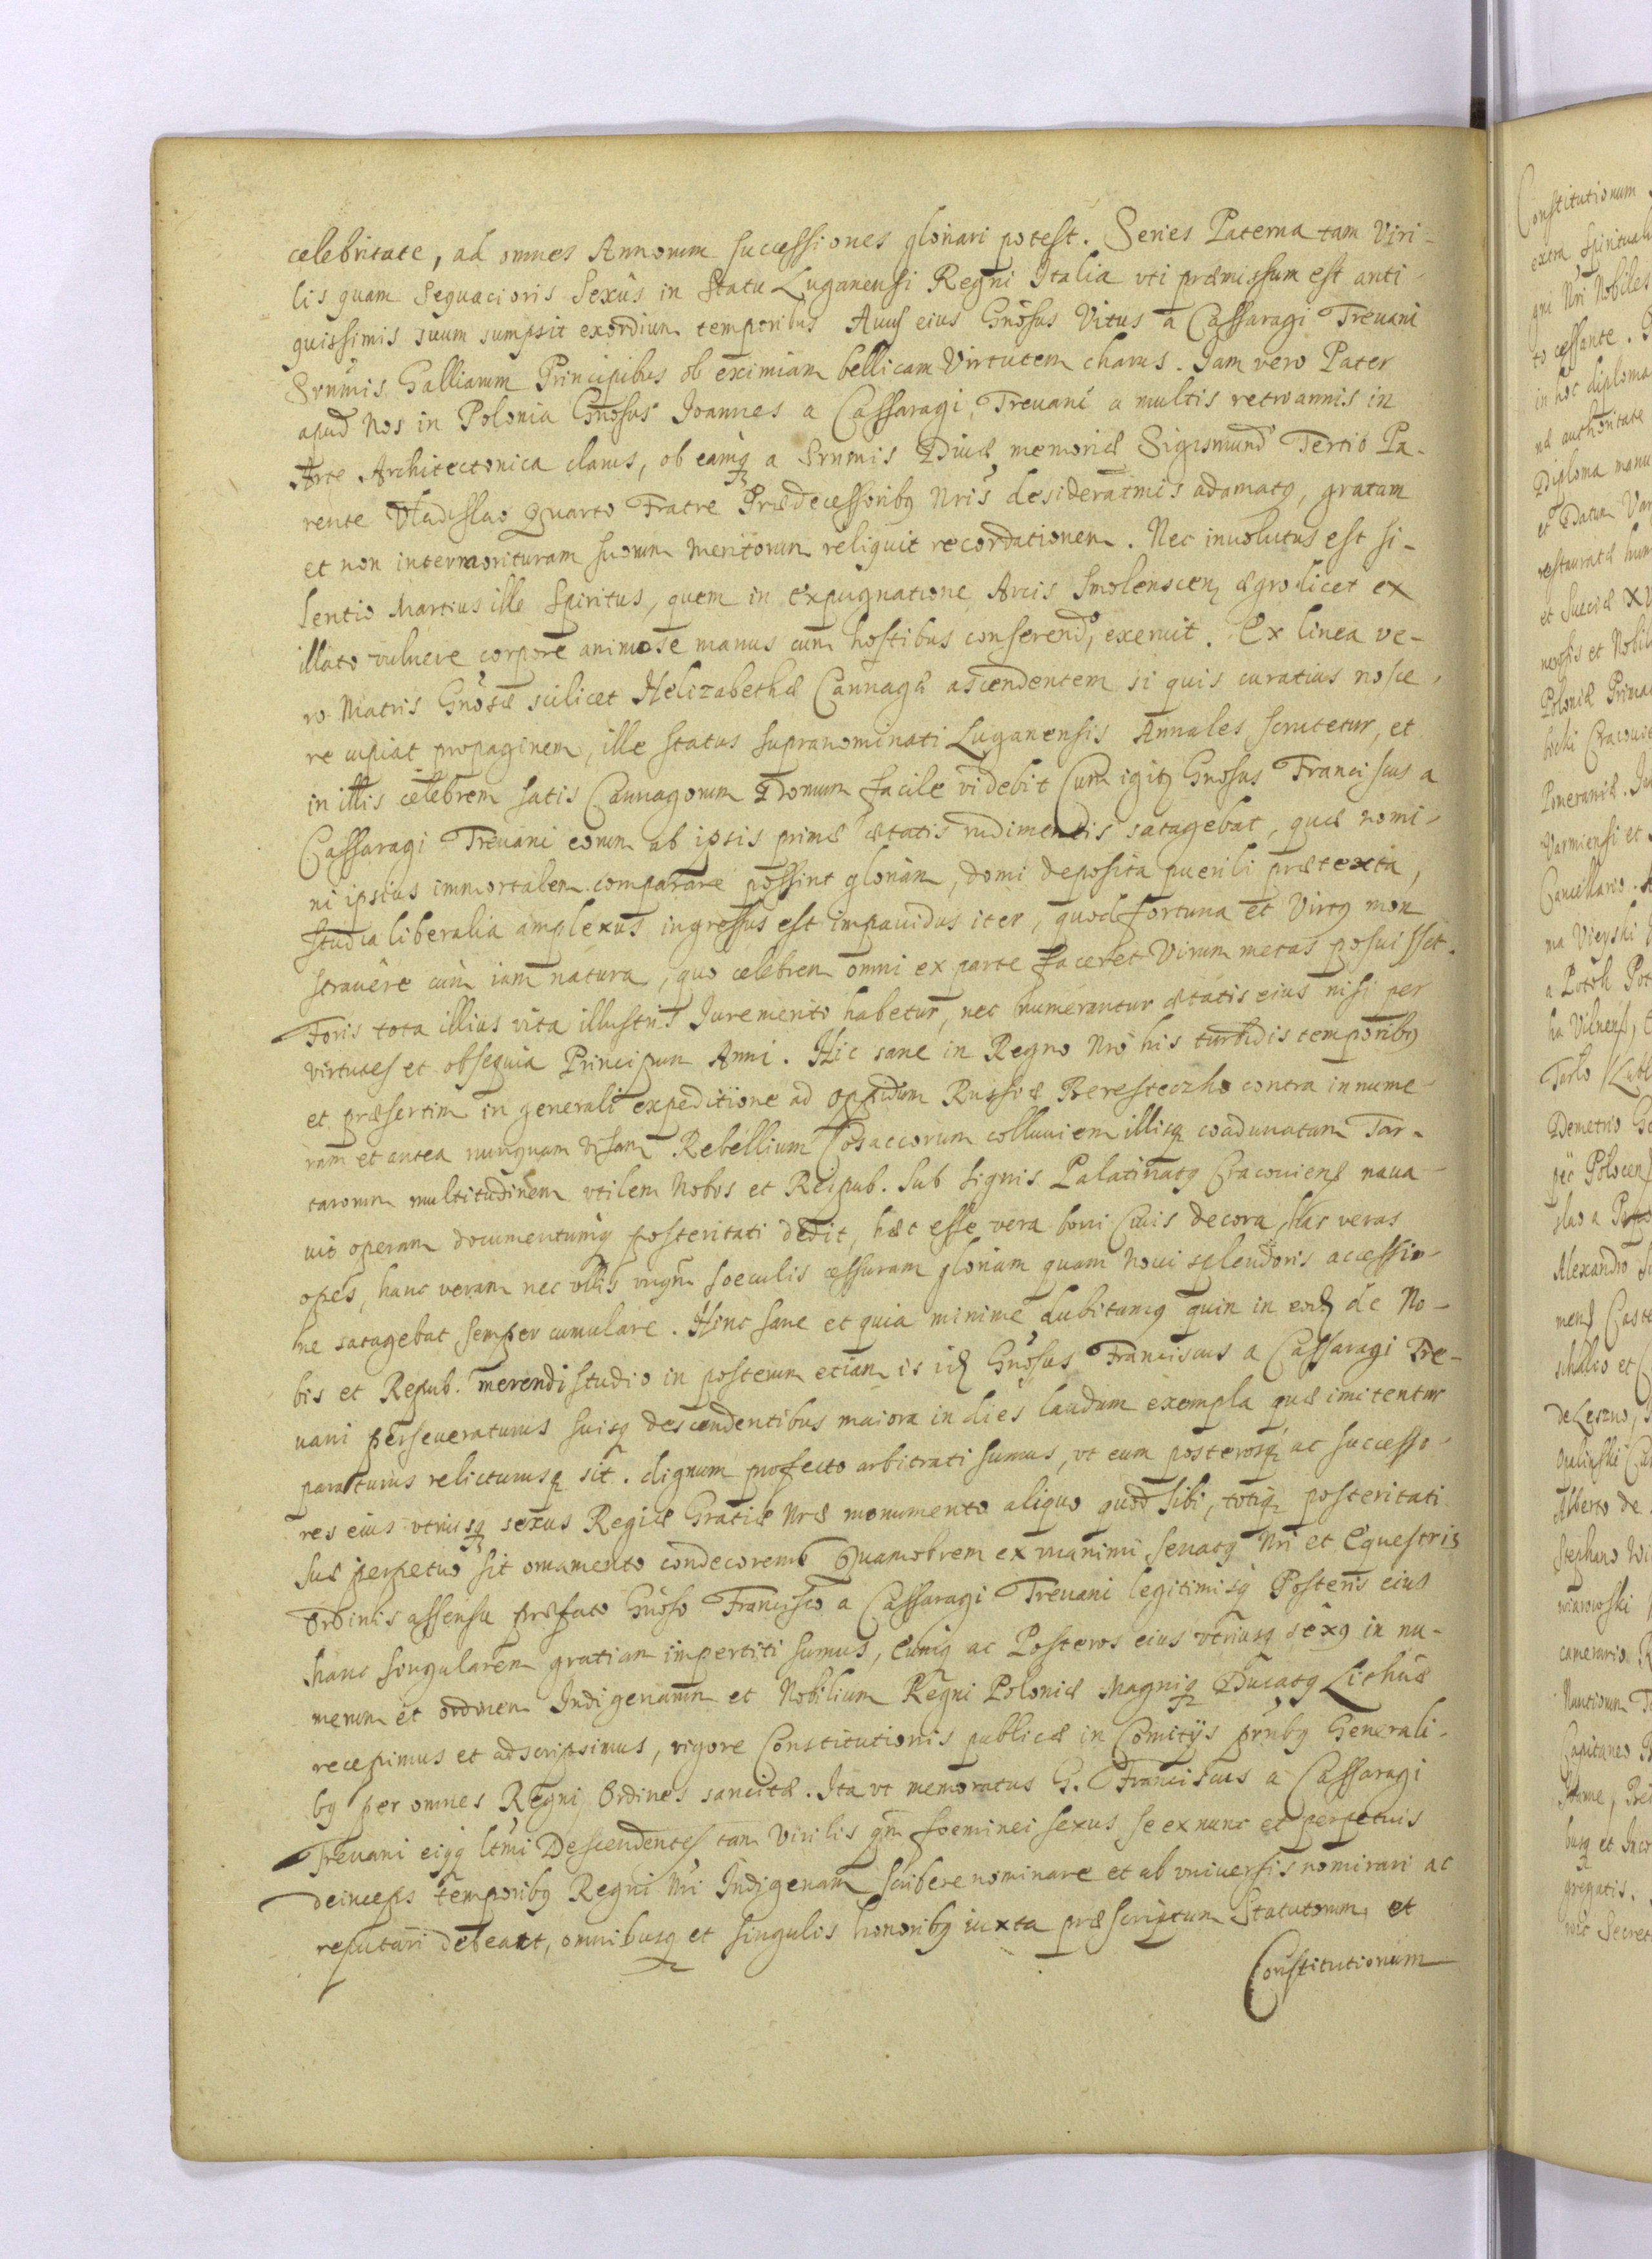 celebritate, ad omnes Annorum successiones gloriari potest. Series Paterna tam Viri-
lis quam Sequacioris Sexus in Statu Luganensi Regni Italia uti præmissum est anti-
quissimis suum sumpsit exordium temporibus Avus eius Gnosus Vitus a Cassaragi Trevani
Srnmis Galliarum Principibus ob eximiam bellicam Virtutem charus. Iam vero Pater
apud Nos in Polonia Gnosus Joannes a Cassaragi Trevani a multis retroannis in
Arte Architectonica clarus, ob eamq a Srnmis Divæ memoriæ Sigismund Tertio Pa-
rente Vladislao Quarto Fratre Prædecessoribq Nris desideratmis adamatq, gratam
et non intermorituram suorum meritorum reliquit recordationem. Nec involutus est si-
lentio Martius ille Spiritus, quem in expugnatione Arcis Smolenscen ægro licet ex
illato vulnere corpore animose manus cum hostibus conserend, exeruit. Ex linea ve-
ro Matris Gnosæ scilicet Helizabethæ Cannagæ ascendentem si quis curatius nosce-
re cupiat propaginem, ille status supranominati Luganensis Annales scrutetur, et
in illis celebrem satis Cannagorum Domum facile videbit Cum igit Gnosus Franciscus a
Cassaragi Trevani eorum ab ipsis primæ ætatis rudimentis satagebat, quæ nomi-
ni ipsius immortalem comparare possint gloriam, domi deposita puerili prætexta,
studia liberalia amplexus ingressus est impavidus iter, quod fortuna et Virtq mon
stravere cum iam natura, quo celebrem omni ex parte faceret Virum metas posuisset.
Foris tota illius vita illustris Iuremerito habetur, nec numerantur ætatis eius nisi per
virtutes et obsequia Principum Anni. Hic sane in Regno Nro his turbidis temporibq
et præsertim in generali expeditione ad oppidum Russiæ Beresteczko contra innume-
ram et antea nunquam visam Rebellium Cosaccorum colluviem illisq coadunatam Tar-
tarorum multitudinem utilem Nobis et Reipub. sub signis Palatinatq Cracoviens nava-
vit operam documentumq posteritati dedit, hæc esse vera boni Civis decora, has veras
opes, hanc veram nec ullis unqm sæculis cessuram gloriam quam novi splendoris accessio-
ne satagebat semper cumulare. Hinc sane et quia minime dubitamq quin in eod de No-
bis et Repub. merendi studio in posterum etiam is id Gnosus Franciscus a Cassaragi Tre-
vani perseveraturus suisq descendentibus maiora in dies laudum exempla quæ imitentur
paraturus relicturusq sit. dignum profecto arbitrati sumus, ut eum posterosq ac successo-
res eius utriusq sexus Regiæ Gratiæ Nræ monumento aliquo quod sibi, totiq posteritati
suæ perpetuo sit ornamento condecoremq Quamobrem ex unanimi senatq Nri et Equestris
Ordinis assensu præfato Gnoso Francisco a Cassaragi Trevani legitimisq Posteris eius
hanc singularem gratiam impertiti sumus, Eumq ac Posteros eius utriusq sexq in nu-
merum et ordinem Indigenarum et Nobilium Regni Poloniæ Magniq Ducatq Lithuæ
recepimus et adscripsimus, vigore Constitutionis publicæ in Comitijs prnbq Generali-
bq per omnes Regni Ordines sancitæ. Ita ut memoratus G. Franciscus a Cassaragi
Trevani eiqq ltmi Descendentes tam Virilis qm foeminei sexus se ex nunc et perpetuis
deinceps temporibq Regni Nri Indigenam scribere nominare et ab universis nominari ac
reputari debeat, omnibusq et singulis honoribq iuxta præscriptum Statutorum et
Constitutionum
Constitutionum
extra Spirituali
gni Nri Nobiles
to cessante.
in hoc diploma
næ authoritate
Diploma manu
et Datum Var
restauratæ hum
et Sueciæ XV
nensis et Nobil
Poloniæ Prima
Pomeraniæ.
Varmiensi et
Cancellario.
a Potok Pot
ha Vilnens,
Tarlo
Demetrio
Polocens
Alexandro
mens Caste
de Leszno,
Opalinski
Alberto de
Stephano
camerario.
Nuntiorum
Capitaneo
busq et
gregatis.
Secret